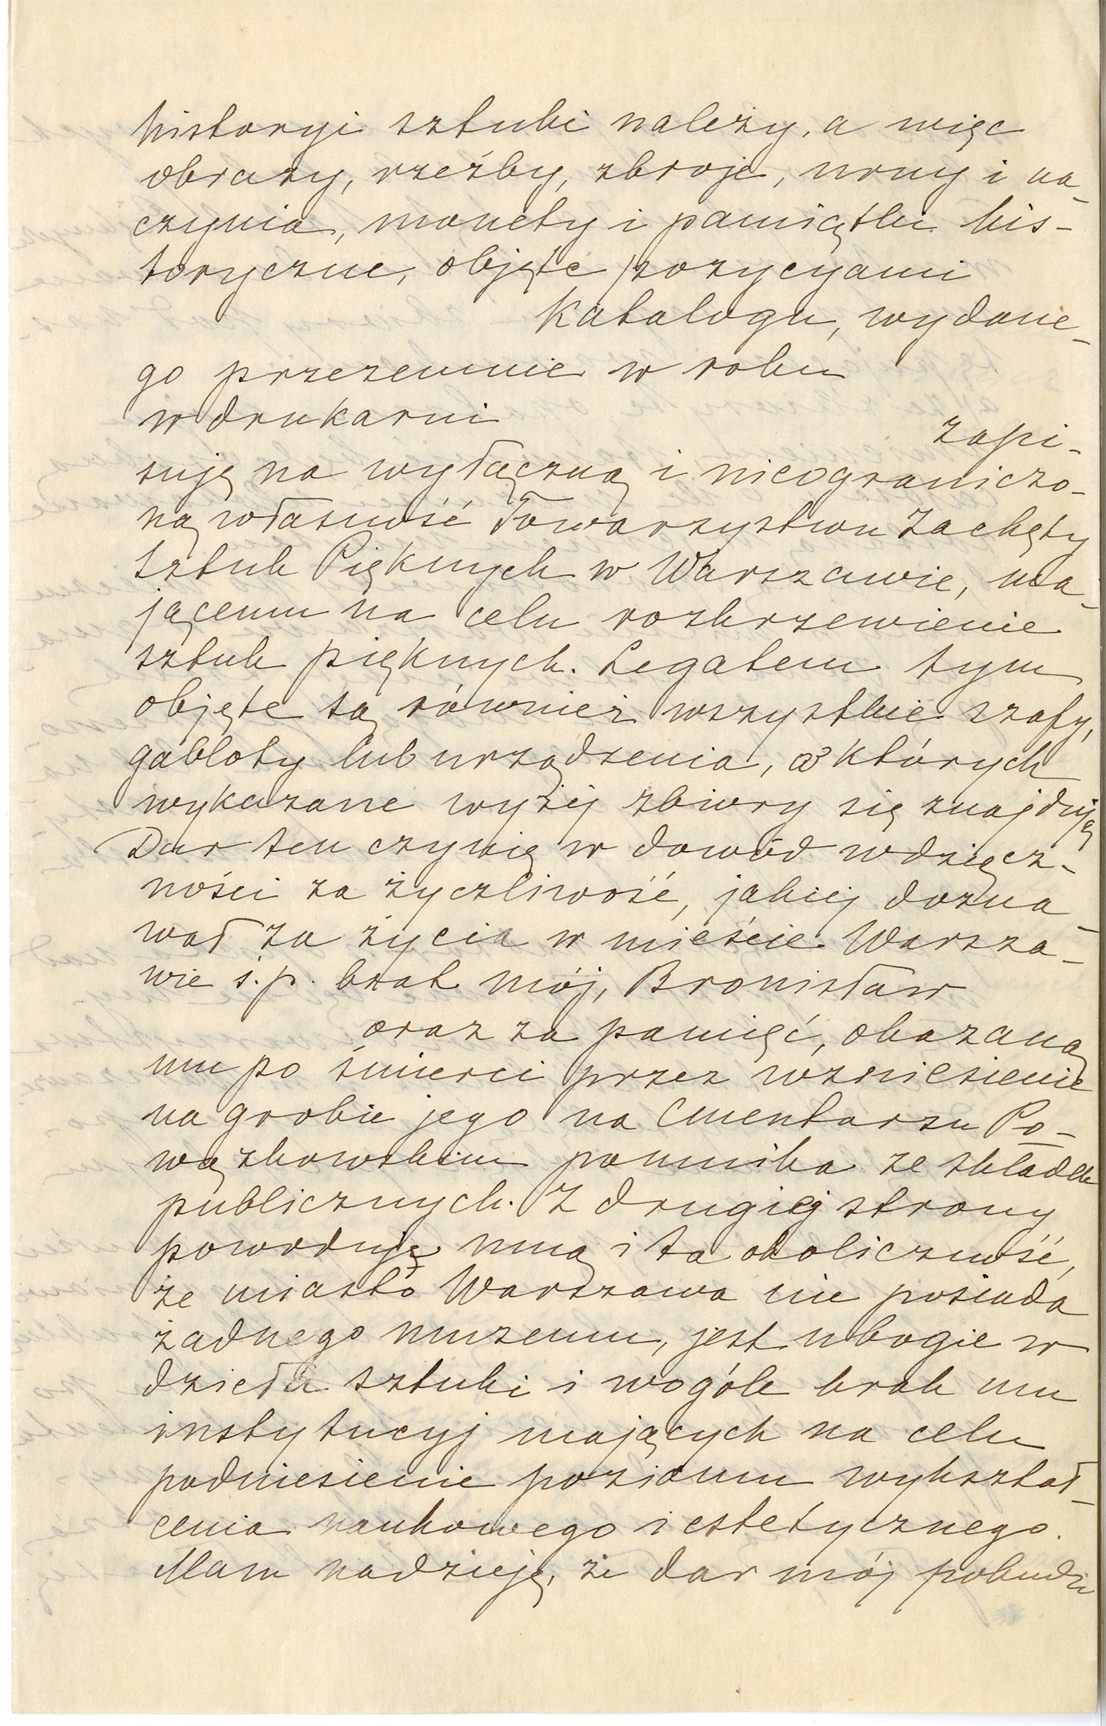 historyi sztuki należy, a więc
obrazy, rzeźby, zbroje, urny i na
czynia, monety i pamiątki his-
toryczne, objęte pozycyami
Katalogu, wydane-
go przezemnie w roku
w drukarni
zapi-
suję na wyłączną i nieograniczo-
ną własność Towarzystwu Zachęty
Sztuk Pięknych w Warszawie, ma-
jącemu na celu rozkrzewienie
sztuk pięknych. Legatem tym
objęte są również wszystkie szafy,
gabloty lub urządzenia, w których
wykazane wyżej zbiory się znajdują
Dar ten czynię w dowód wdzięcz-
ności za życzliwość, jakiej dozna-
wał za życia w mieście Warsza-
wie ś.p. brat mój, Bronisław
oraz za pamięć, okazaną
mu po śmierci przez wzniesienie
na grobie jego na Cmentarzu Po-
wązkowskim pomnika ze składek
publicznych. Z drugiej strony
powoduję mną i ta okoliczność,
że miasto Warszawa nie posiada
żadnego muzeum, jest ubogie w
dzieła sztuki i wogóle brak mu
instytucyj mających na celu
podniesienie poziomu wykształ-
cenia naukowego i estetycznego.
Mam nadzieję, że dar mój pobudzi